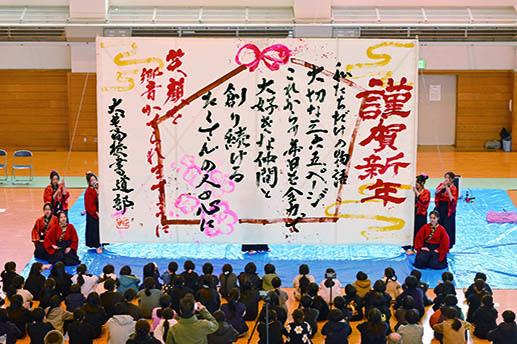 謹賀新年
私たちだけの物語
大切な三六五ページ
これからの毎日を全力で
大好きな仲間と
創り続ける
たくさんの人の心に
笑顔を
響かせます
高校書道部